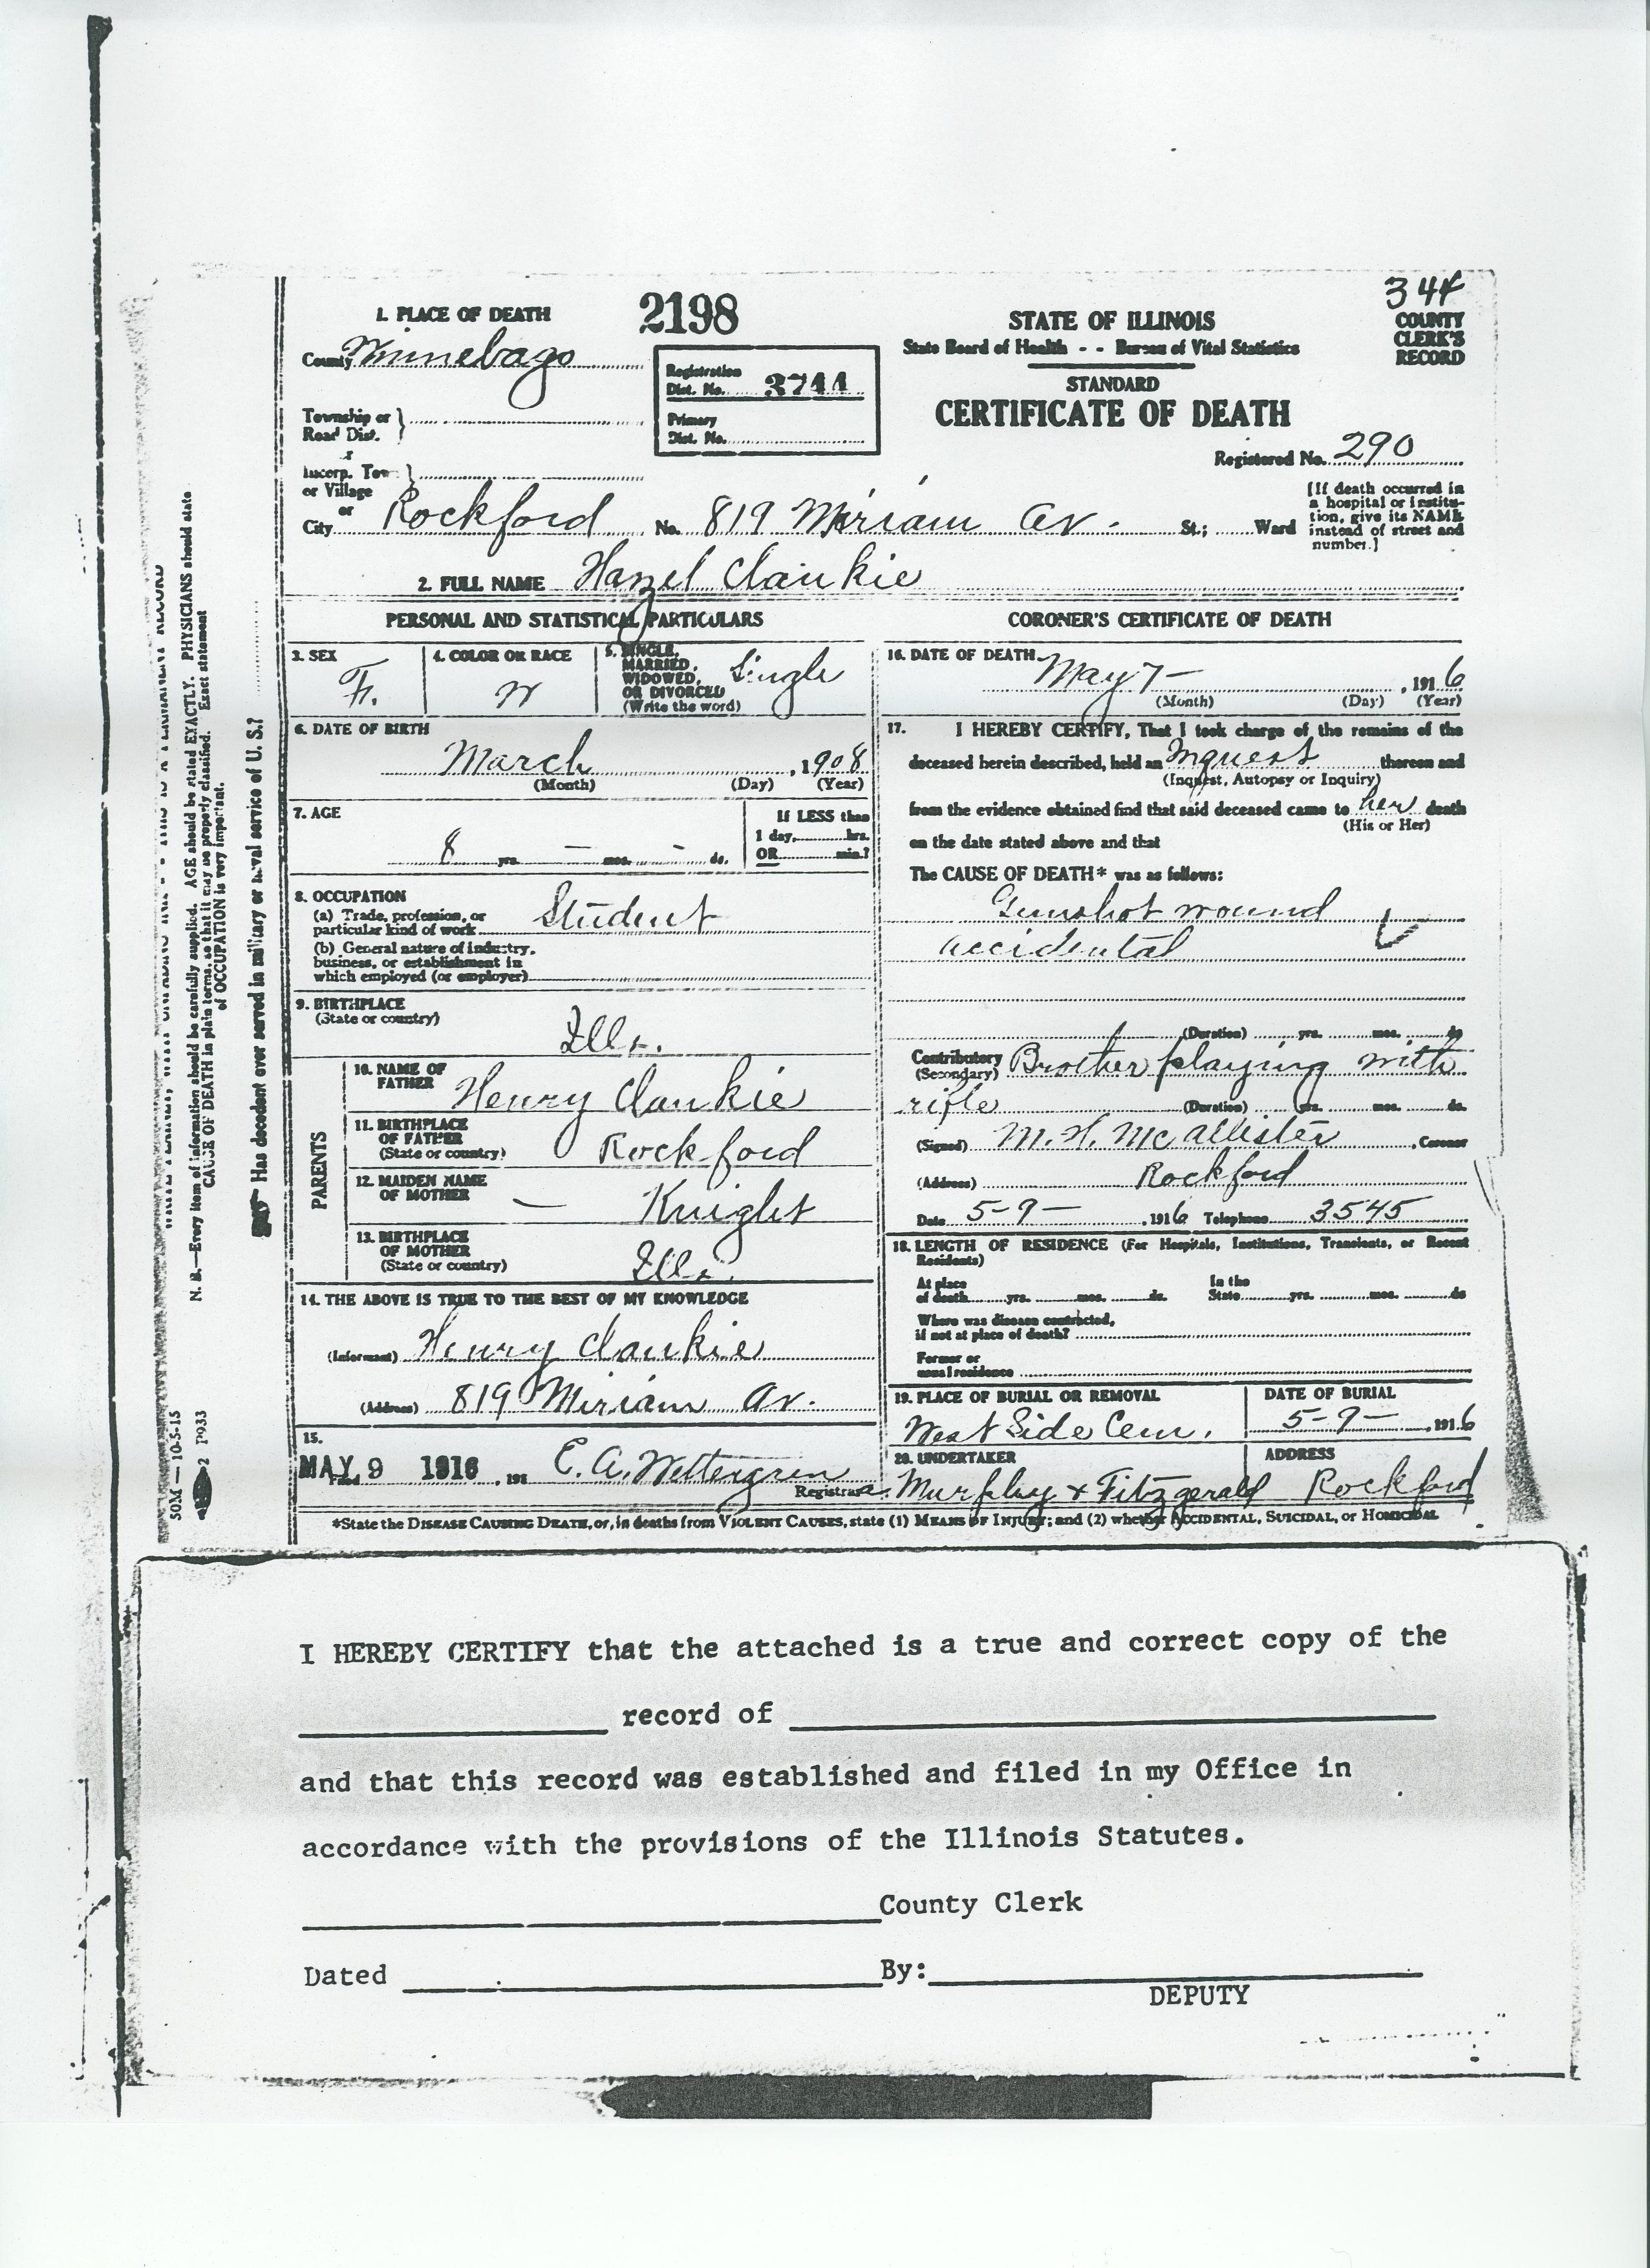 344
COUNTY
CLERK'S
RECORD
2198
1. PLACE OF DEATH
County Winnebago
Registration
Dist. No. 3744
Primary
Dist. No.
STATE OF ILLINOIS
State Board of Health - - Bureau of Vital Statistics
STANDARD
CERTIFICATE OF DEATH
Registered No. 290
Township or
Road Dist.
or
Incorp. Town
or Village
or
City Rockford No. 819 Miriam Av. St.; Ward
[If death occurred in
a hospital or institu-
tion, give its NAME
instead of street and
number.]
2. FULL NAME Hazel Clankie
PERSONAL AND STATISTICAL PARTICULARS
3. SEX
F.
4. COLOR OR RACE
W
5. SINGLE,
MARRIED,
WIDOWED,
OR DIVORCED
(Write the word)
Single
6. DATE OF BIRTH
March , 1908
(Month) (Day) (Year)
7. AGE
8 yrs. — mos. - ds.
If LESS than
1 day, hrs.
OR min.?
8. OCCUPATION
(a) Trade, profession, or
particular kind of work Student
(b) General nature of industry,
business, or establishment in
which employed (or employer)
9. BIRTHPLACE
(State or country)
Ills.
PARENTS
10. NAME OF
FATHER Henry Clankie
11. BIRTHPLACE
OF FATHER
(State or country) Rockford
12. MAIDEN NAME
OF MOTHER — Knight
13. BIRTHPLACE
OF MOTHER
(State or country) Ills.
14. THE ABOVE IS TRUE TO THE BEST OF MY KNOWLEDGE
(Informant) Henry Clankie
(Address) 819 Miriam Av.
15.
MAY 9 1916 , 191 E. A. Wettergren
Filed Registrar
CORONER'S CERTIFICATE OF DEATH
16. DATE OF DEATH
May 7 — , 1916
(Month) (Day) (Year)
17. I HEREBY CERTIFY, That I took charge of the remains of the
deceased herein described, held an Inquest thereon and
(Inquest, Autopsy or Inquiry)
from the evidence obtained find that said deceased came to her death
(His or Her)
on the date stated above and that
The CAUSE OF DEATH* was as follows:
Gunshot wound
accidental
(Duration) yrs. mos. ds
Contributory
(Secondary) Brother playing with
rifle (Duration) yrs. mos. ds.
(Signed) M. H. McAllister , Coroner
(Address) Rockford
Date 5-9- , 1916 Telephone 3545
18. LENGTH OF RESIDENCE (For Hospitals, Institutions, Transients, or Recent
Residents)
At place
of death yrs. mos. ds.
In the
State yrs. mos. ds
Where was disease contracted,
if not at place of death?
Former or
usual residence
19. PLACE OF BURIAL OR REMOVAL
West Side Cem.
DATE OF BURIAL
5-9- , 1916
20. UNDERTAKER
Murphy & Fitzgerald
ADDRESS
Rockford
*State the DISEASE CAUSING DEATH, or, in deaths from VIOLENT CAUSES, state (1) MEANS OF INJURY; and (2) whether ACCIDENTAL, SUICIDAL, or HOMICIDAL
N. B.—Every item of information should be carefully supplied. AGE should be stated EXACTLY. PHYSICIANS should state
CAUSE OF DEATH in plain terms, so that it may be properly classified. Exact statement
of OCCUPATION is very important.
Has decedent ever served in military or naval service of U. S.?
50M — 10-5-15
I HEREBY CERTIFY that the attached is a true and correct copy of the
record of
and that this record was established and filed in my Office in
accordance with the provisions of the Illinois Statutes.
County Clerk
Dated By:
DEPUTY